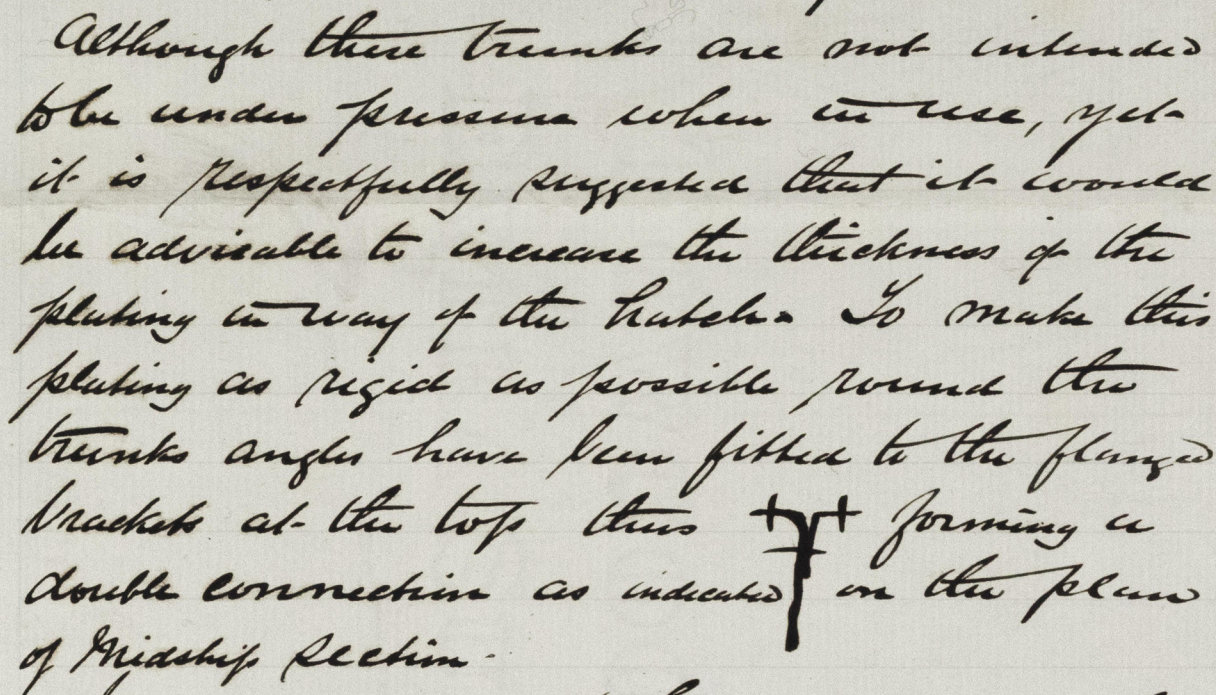 Although these trunks are not intended
to be under pressure when in use, yet
it is respectfully suggested that it would
be advisable to increase the thickness of the
plating in way of the hatch. To make this
plating as rigid as possible round the
trunks angles have been fitted to the flanged
brackets at the top thus forming a
double connection as indicated on the plan
of Midship Section.